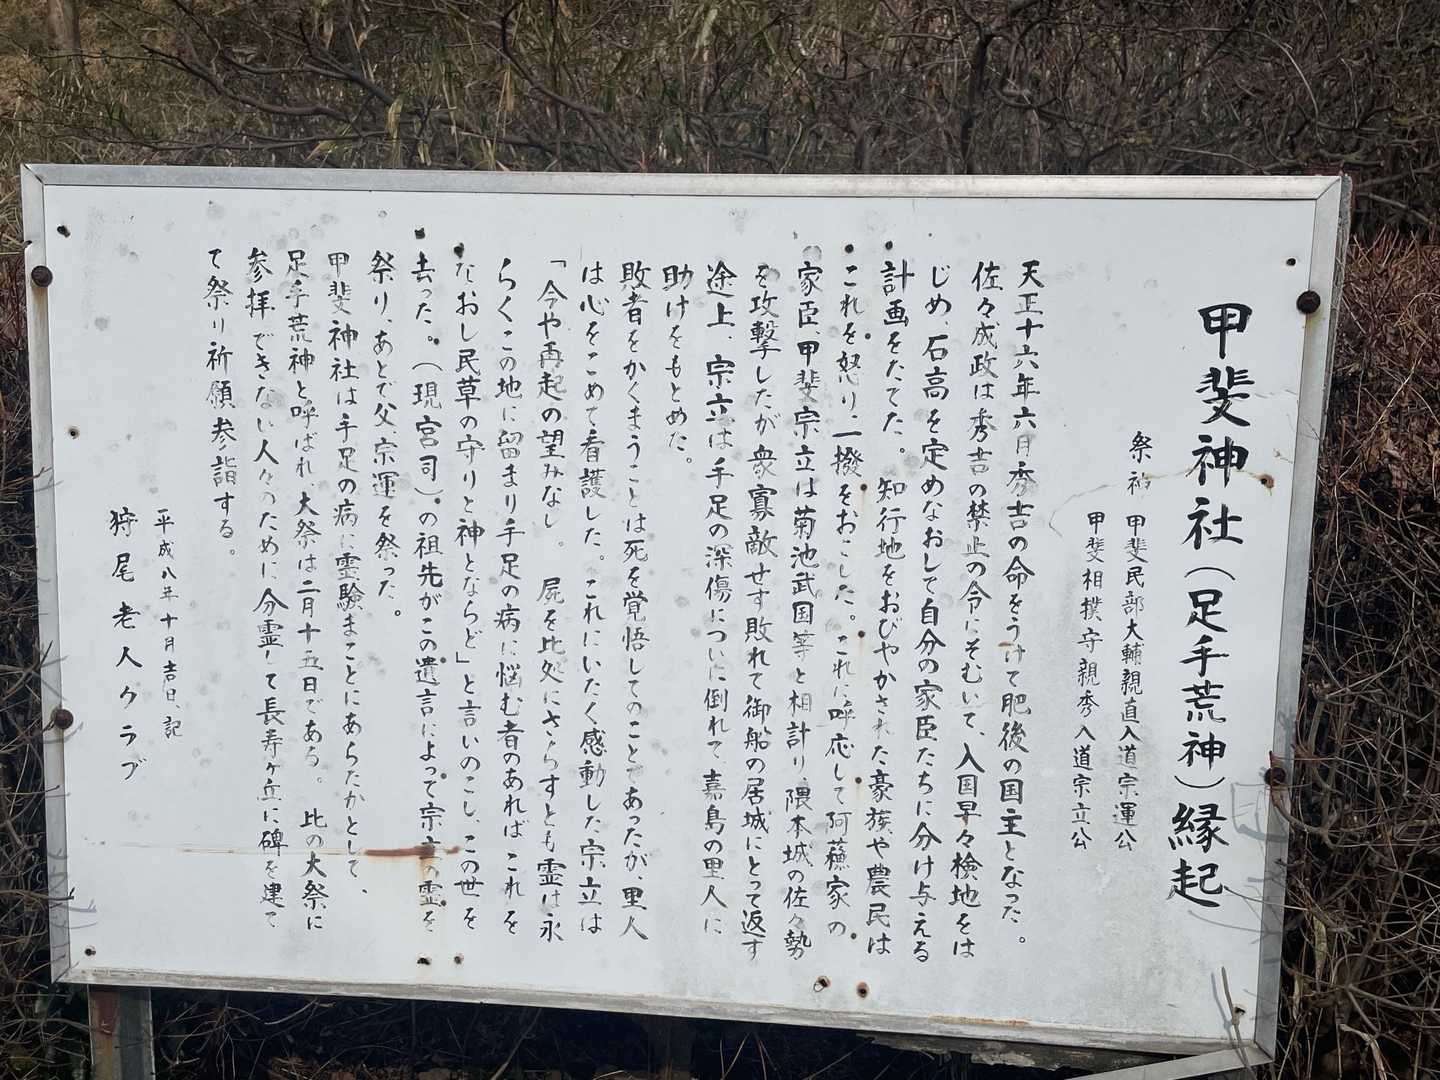 甲斐神社（足手荒神）縁起
祭神 甲斐民部大輔親直入道宗運公
甲斐相撲守親秀入道宗立公
天正十六年六月秀吉の命をうけて肥後の国主となった。
佐々成政は秀吉の禁止の令にそむいて、入国早々検地をは
じめ、石高を定めなおして自分の家臣たちに分け与える
計画をたてた。知行地をおびやかされた豪族や農民は
これを怒り一揆をおこした。これに呼応して阿蘇家の
家臣、甲斐宗立は菊池武国等と相計り隈本城の佐々勢
を攻撃したが衆寡敵せず敗れて御船の居城にとって返す
途上、宗立は手足の深傷についに倒れて嘉島の里人に
助けをもとめた。
敗者をかくまうことは死を覚悟してのことであったが、里人
は心をこめて看護した。これにいたく感動した宗立は
「今や再起の望みなし。屍を此処にさらすとも霊は永
らくこの地に留まり手足の病に悩む者のあればこれを
なおし民草の守りと神とならど」と言いのこし、この世を
去った。（現宮司）の祖先がこの遺言によって宗立の霊を
祭り、あとで父、宗運を祭った。
甲斐神社は手足の病に霊験まことにあらたかとして、
足手荒神と呼ばれ、大祭は二月十五日である。此の大祭に
参拝できない人々のために分霊して長寿ヶ丘に碑を建て
て祭り祈願参詣する。
平成八年十月吉日、記
狩尾老人クラブ